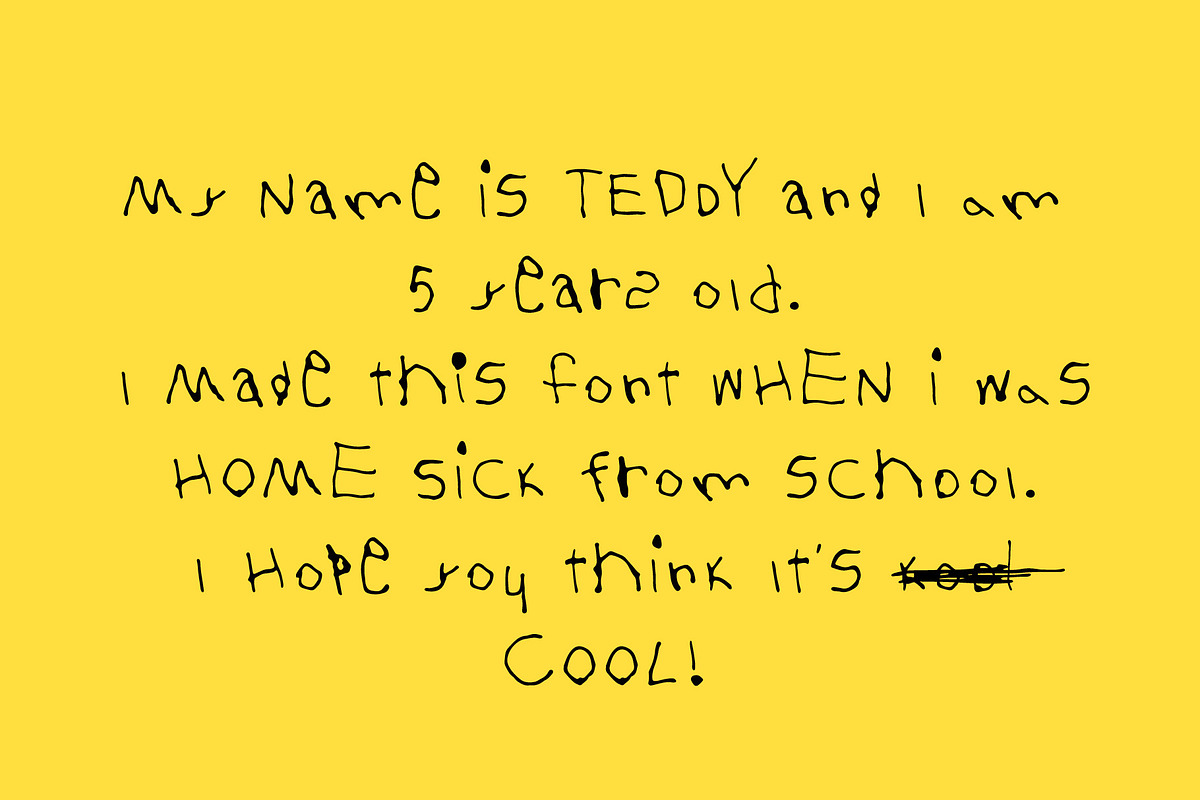 My Name is TEDDY and I am
5 years old.
I Made this font WHEN i was
HOME SiCK from SCHool.
I HoPe you think It's kool
COOL!